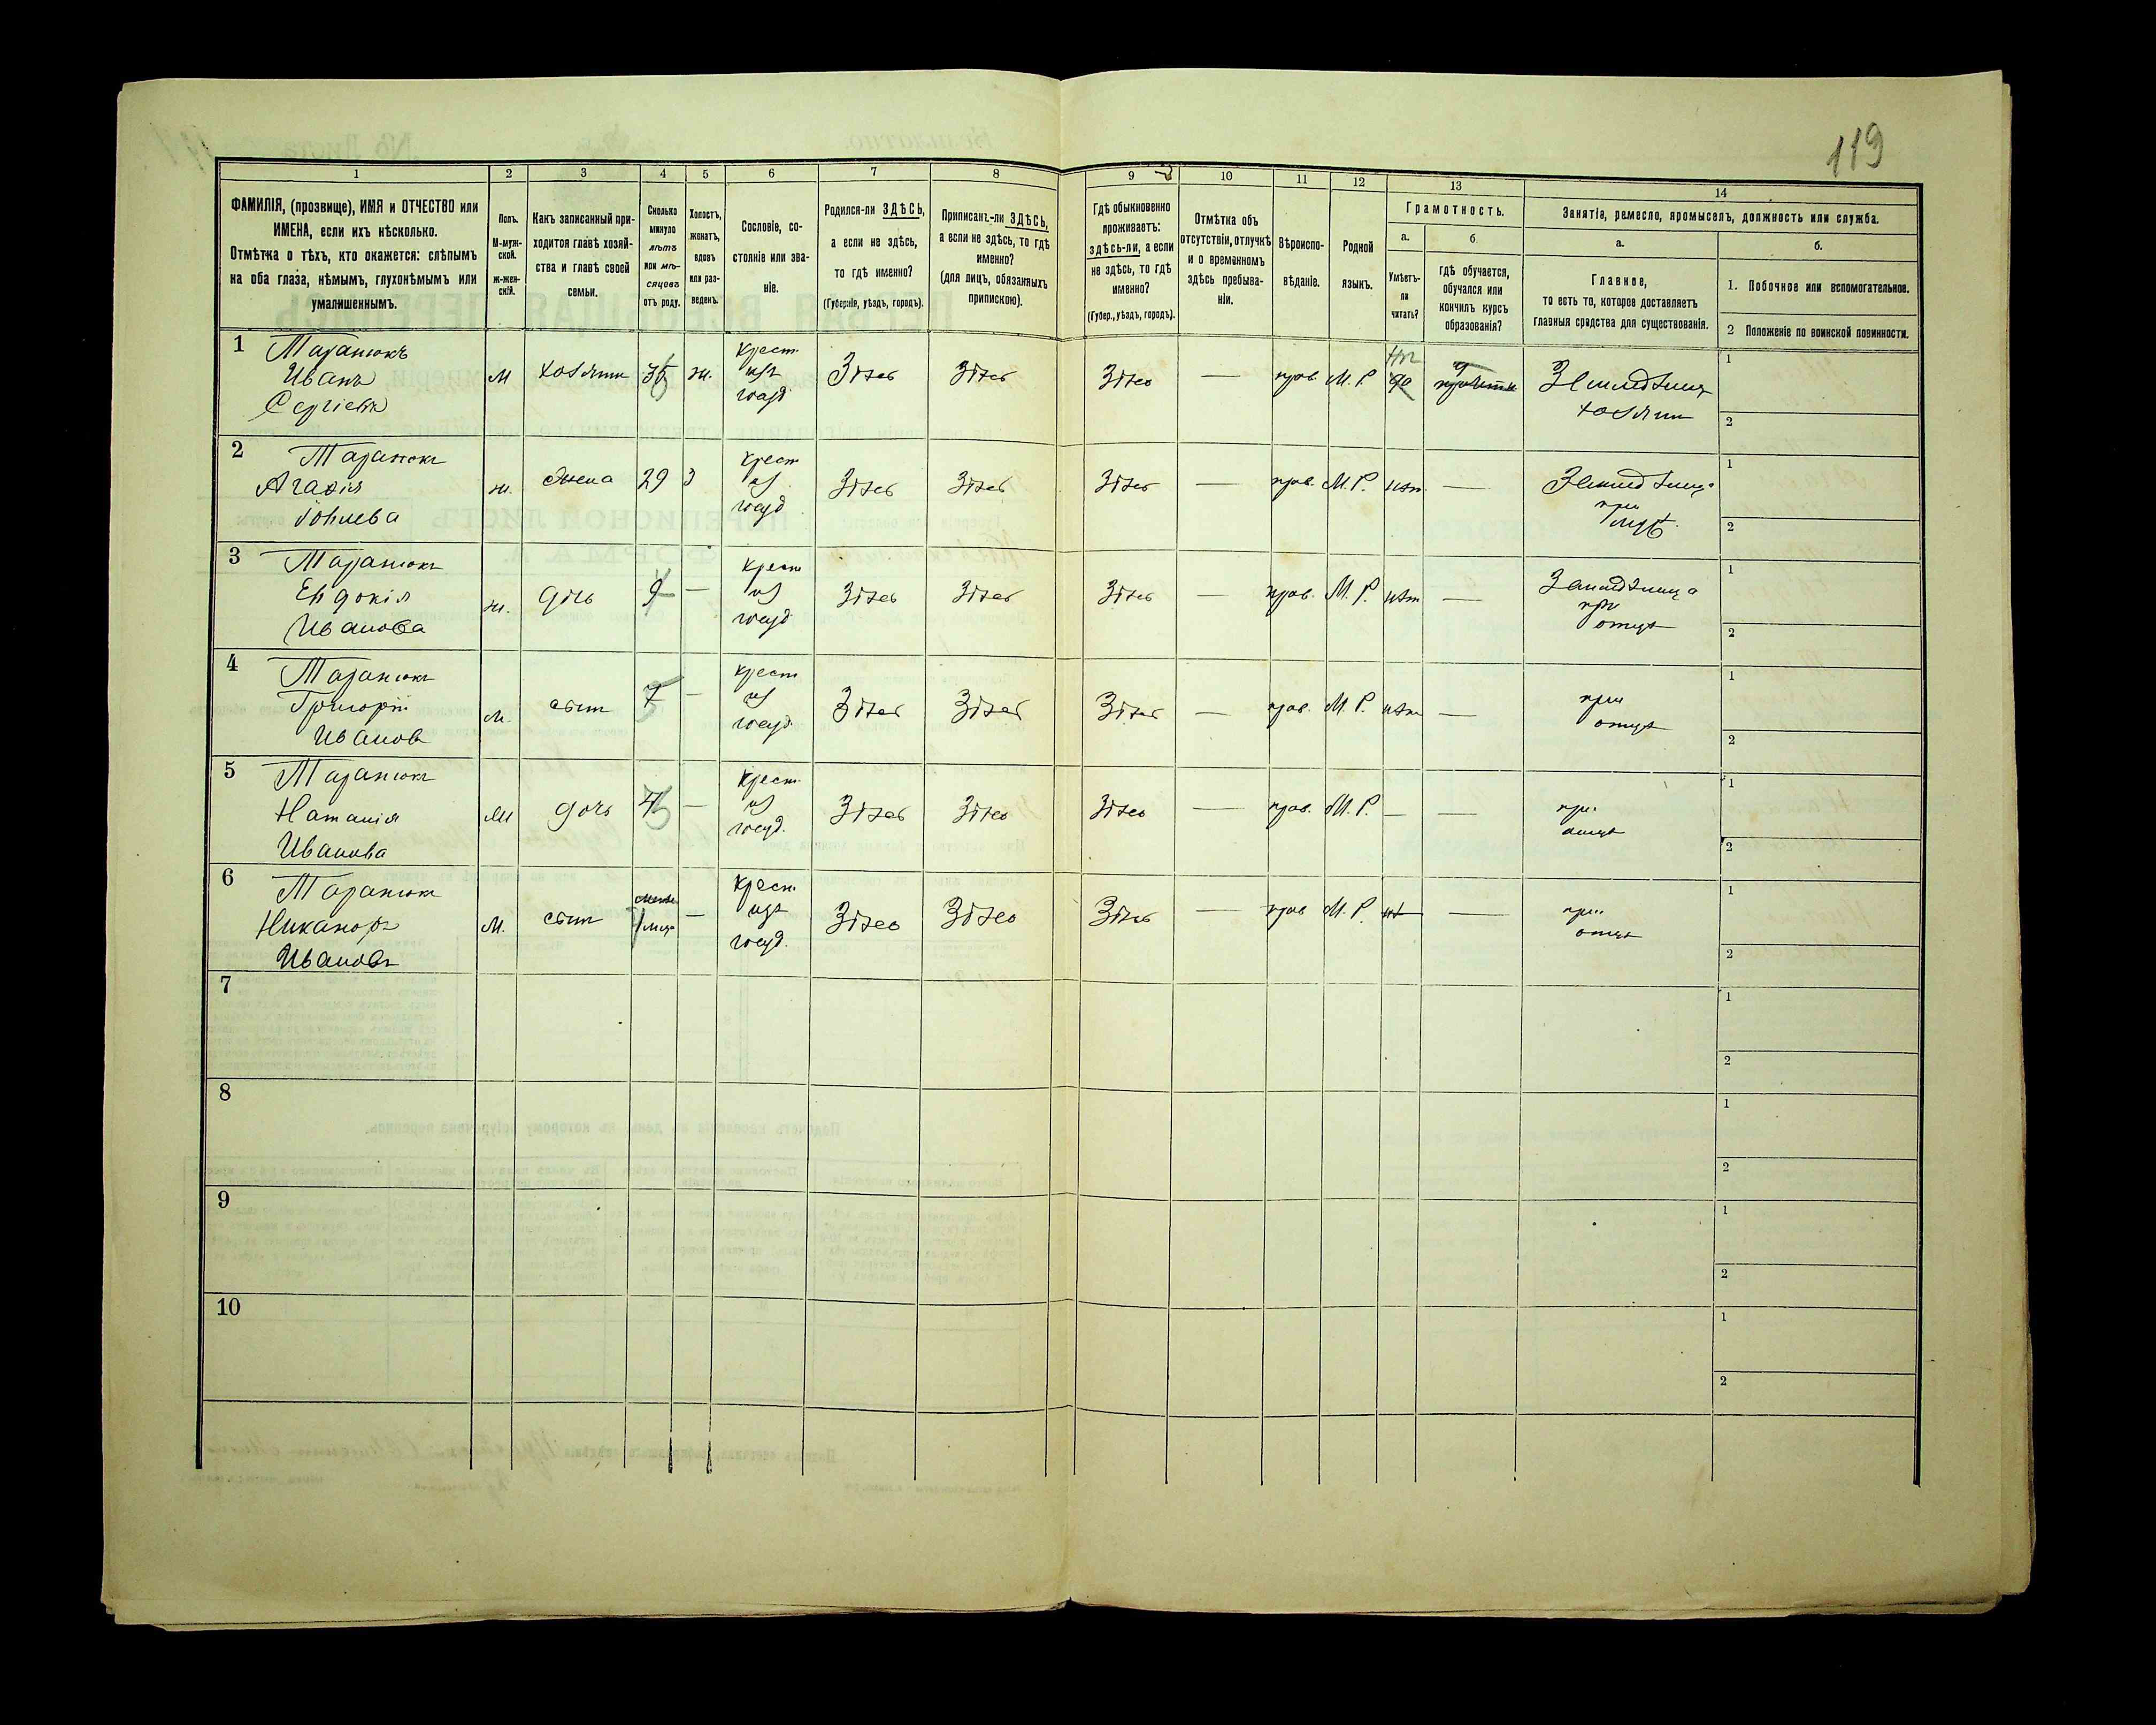 119
1 2 3 4 5 6 7 8 9 10 11 12 13 14
ФАМИЛІЯ, (прозвище), ИМЯ и ОТЧЕСТВО или
ИМЕНА, если ихъ нѣсколько.
Отмѣтка о тѣхъ, кто окажется: слѣпымъ
на оба глаза, нѣмымъ, глухонѣмымъ или
умалишеннымъ.
Полъ.
М-муж-
ской.
ж-жен-
скій.
Какъ записанный при-
ходится главѣ хозяй-
ства и главѣ своей
семьи.
Сколько
минуло
лѣтъ
или мѣ-
сяцевъ
отъ роду.
Холостъ,
женатъ,
вдовъ
или раз-
веденъ.
Сословіе, со-
стояніе или зва-
ніе.
Родился-ли ЗДѢСЬ,
а если не здѣсь,
то гдѣ именно?
(Губернія, уѣздъ, городъ).
Приписанъ-ли ЗДѢСЬ,
а если не здѣсь, то гдѣ
именно?
(для лицъ, обязанныхъ
припискою).
Гдѣ обыкновенно
проживаетъ:
здѣсь-ли, а если
не здѣсь, то гдѣ
именно?
(Губер., уѣздъ, городъ).
Отмѣтка объ
отсутствіи, отлучкѣ
и о временномъ
здѣсь пребыва-
ніи.
Вѣроиспо-
вѣданіе.
Родной
языкъ.
Грамотность.
а.
Умѣетъ-
ли
читать?
б
гдѣ обучается,
обучался или
кончилъ курсъ
образованія?
Занятіе, ремесло, промыселъ, должность или служба.
а.
Главное,
то есть то, которое доставляетъ
главныя средства для существованія.
б.
1. Побочное или вспомогательное.
2 Положеніе по воинской повинности.
1 Таранюкъ
Иванъ
Сергіевъ
м хозяинъ 35 ж.
крест
изъ
госуд
Здѣсь Здѣсь Здѣсь — прав. М. Р.
Земледѣлецъ
хозяинъ
1
2
2 Таранюкъ
Агафія
жена 29 з
крест
из
госуд
Здѣсь Здѣсь Здѣсь — прав. М. Р. нѣт. —
Земледѣлица
при
мужѣ.
1
2
3 Таранюкъ
Евдокія
Иванова
ж. дочь 9 —
крест
из
госуд
Здѣсь Здѣсь Здѣсь — прав. М. Р. нѣт —
Земледѣлица
при
отцѣ
1
2
4 Таранюкъ
Григорій
Иванов
м. сынъ 7 —
крест
из
госуд.
Здѣсь Здѣсь Здѣсь — прав. М. Р. нѣт —
при
отцѣ
1
2
5 Таранюкъ
Наталія
Иванова
дочь —
крест.
из
госуд.
Здѣсь Здѣсь Здѣсь — прав. М. Р. — —
при
отцѣ
1
2
6 Таранюкъ
Никаноръ
Ивановъ
м. сынъ —
крест.
изъ
госуд.
Здѣсь Здѣсь Здѣсь — прав М. Р. —
при
отцѣ
1
2
7
1
2
8
1
2
9
1
2
10
1
2